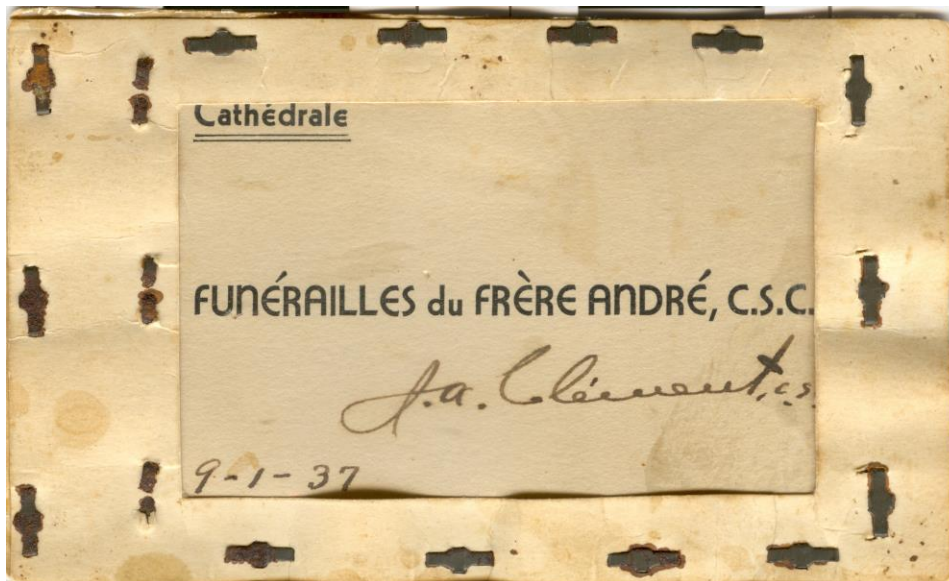 Cathédrale
FUNÉRAILLES du FRÈRE ANDRÉ, C.S.C.
J.A. Clément, c.s.
9-1-37